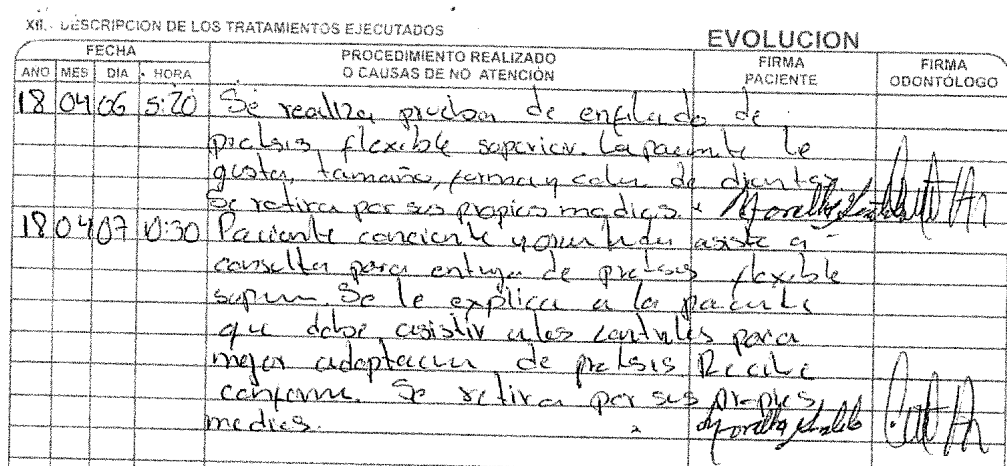 XII.- DESCRIPCION DE LOS TRATAMIENTOS EJECUTADOS
EVOLUCION
FECHA
AÑO MES DIA HORA
PROCEDIMIENTO REALIZADO
O CAUSAS DE NO ATENCIÓN
FIRMA
PACIENTE
FIRMA
ODONTÓLOGO
18 04 06 5:20 Se realiza prueba de enfilado de
protesis flexible superior. La paciente le
gusta, tamaño, forma y color de dientes.
Se retira por sus propios medios.
18 04 07 10:30 Paciente conciente y orientada asiste a
consulta para entrega de protesis flexible
superior. Se le explica a la paciente
que debe asistir a los controles para
mejor adaptacion de protesis Recibe
conforme. Se retira por sus propios
medios.